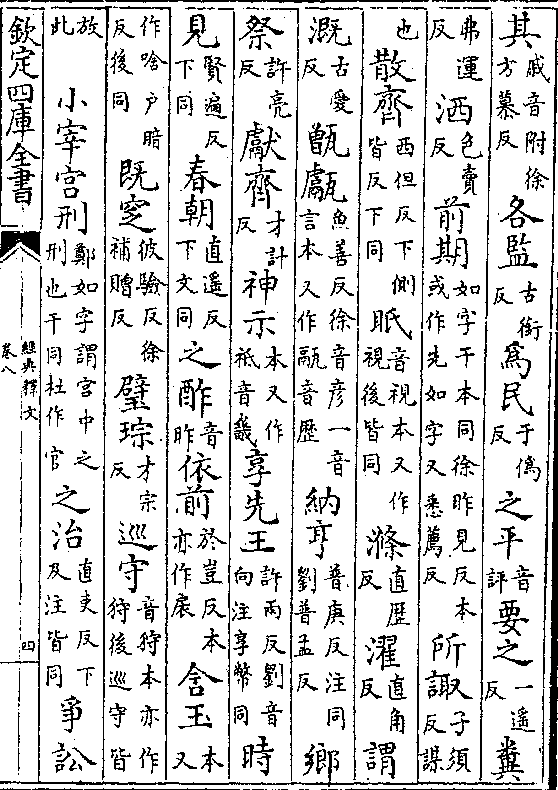 其戚音附徐方慕反各監古銜反爲民于偽反之平音評要之一遥反糞
弗運反洒色賣反前期如字干本同徐昨見反本或作先如字又悉薦反所諏子須反謀
也散齊西但反下側皆反下同眂音視本又作視後皆同滌直歴反濯直角反謂
溉古愛反甑甗魚善反徐音彦一音言本又作鬲音歴納亨普庚反注同劉普孟反鄉
祭許亮反獻齊才計反神示本又作祇音畿享先王許兩反劉音向注享幣同時
見賢遍反下同春朝直遥反下文同之酢音昨依前於豈反本亦作扆含玉本又
作唅户暗反後同既窆彼驗反徐補贈反璧琮才宗反巡守音狩本亦作狩後巡守皆
放此小宰宫刑鄭如字謂宫中之刑也干同杜作官之治直吏反下及注皆同爭訟
欽定四庫全書
經典釋文
卷八
四